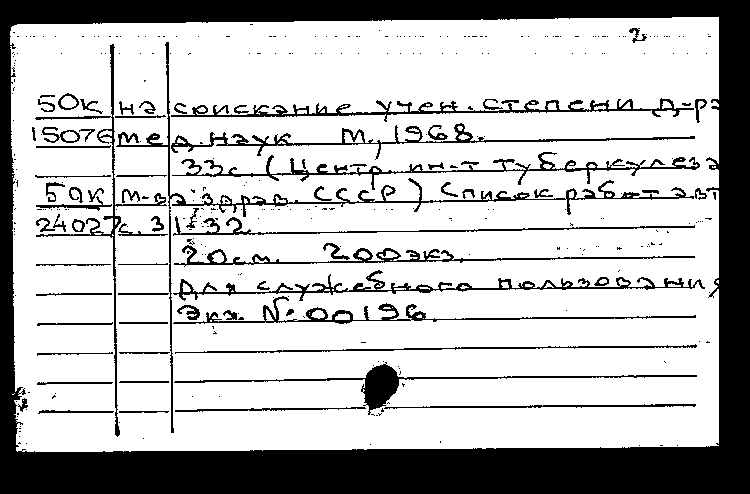 2
50к на соискание учен. степени д-ра
15076 мед. наук М., 1968.
33с. (Центр. ин-т туберкулеза
50к м-ва здрав. СССР) Список работ авт
24027 с. 31-32.
20см. 200экз.
Для служебного пользования
Экз. №00196.